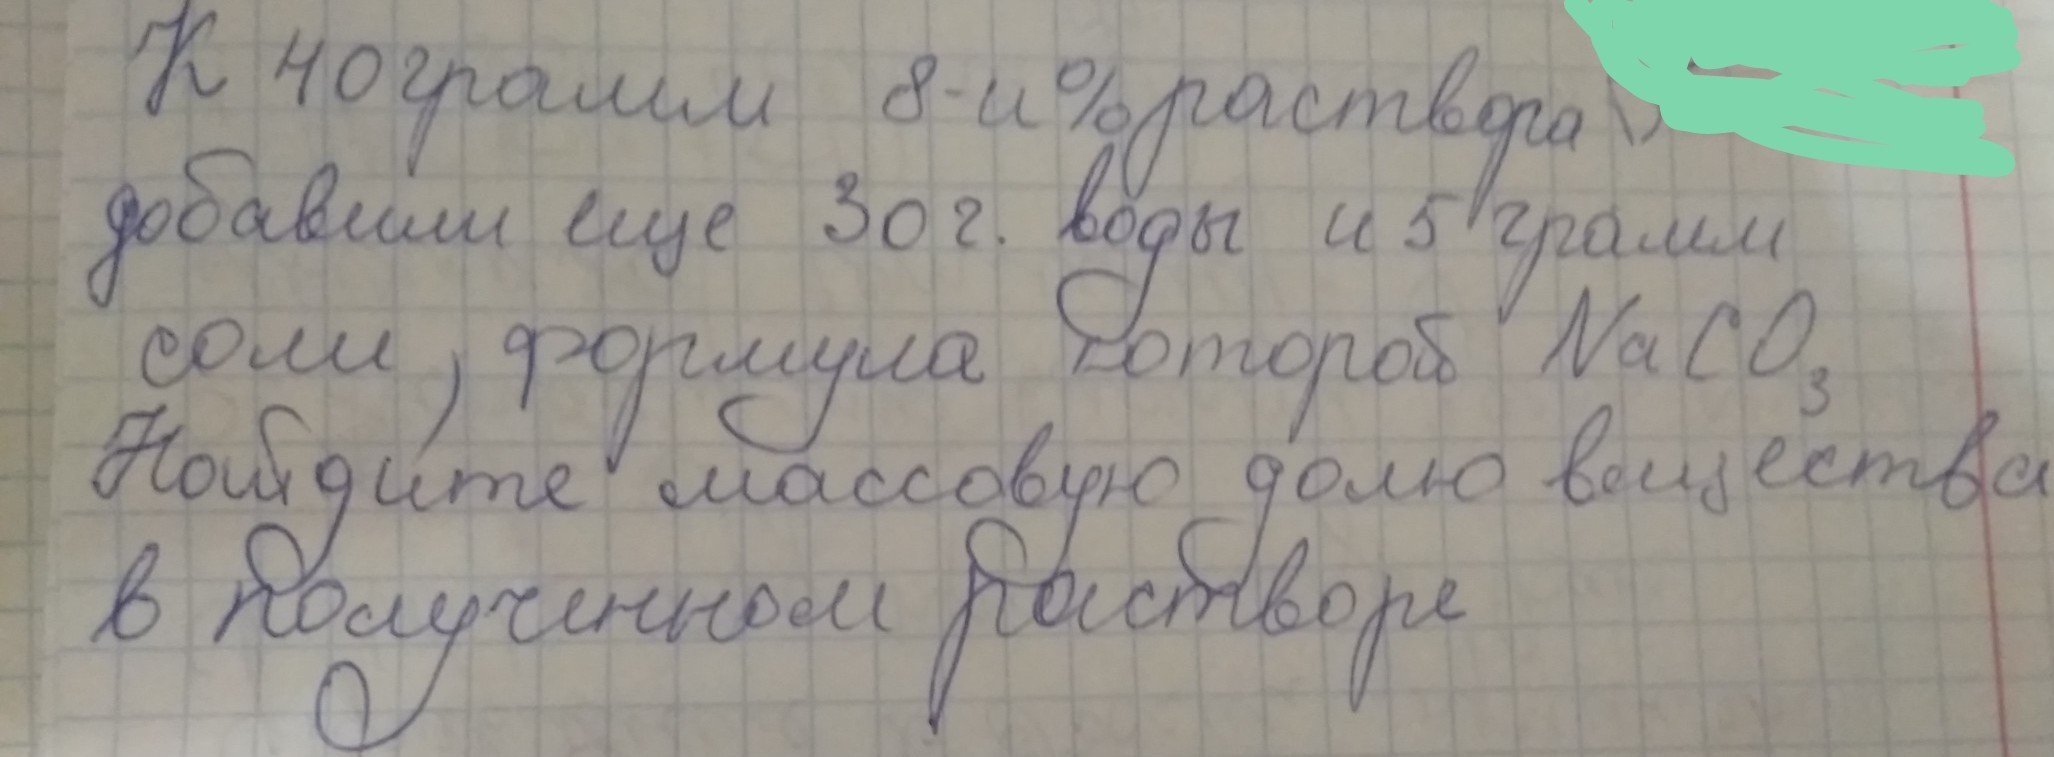 К 40 грамм 8-и % раствора
добавили еще 30 г. воды и 5 грамм
соли, формула которой NaCO₃
Найдите массовую долю вещества
в полученном растворе